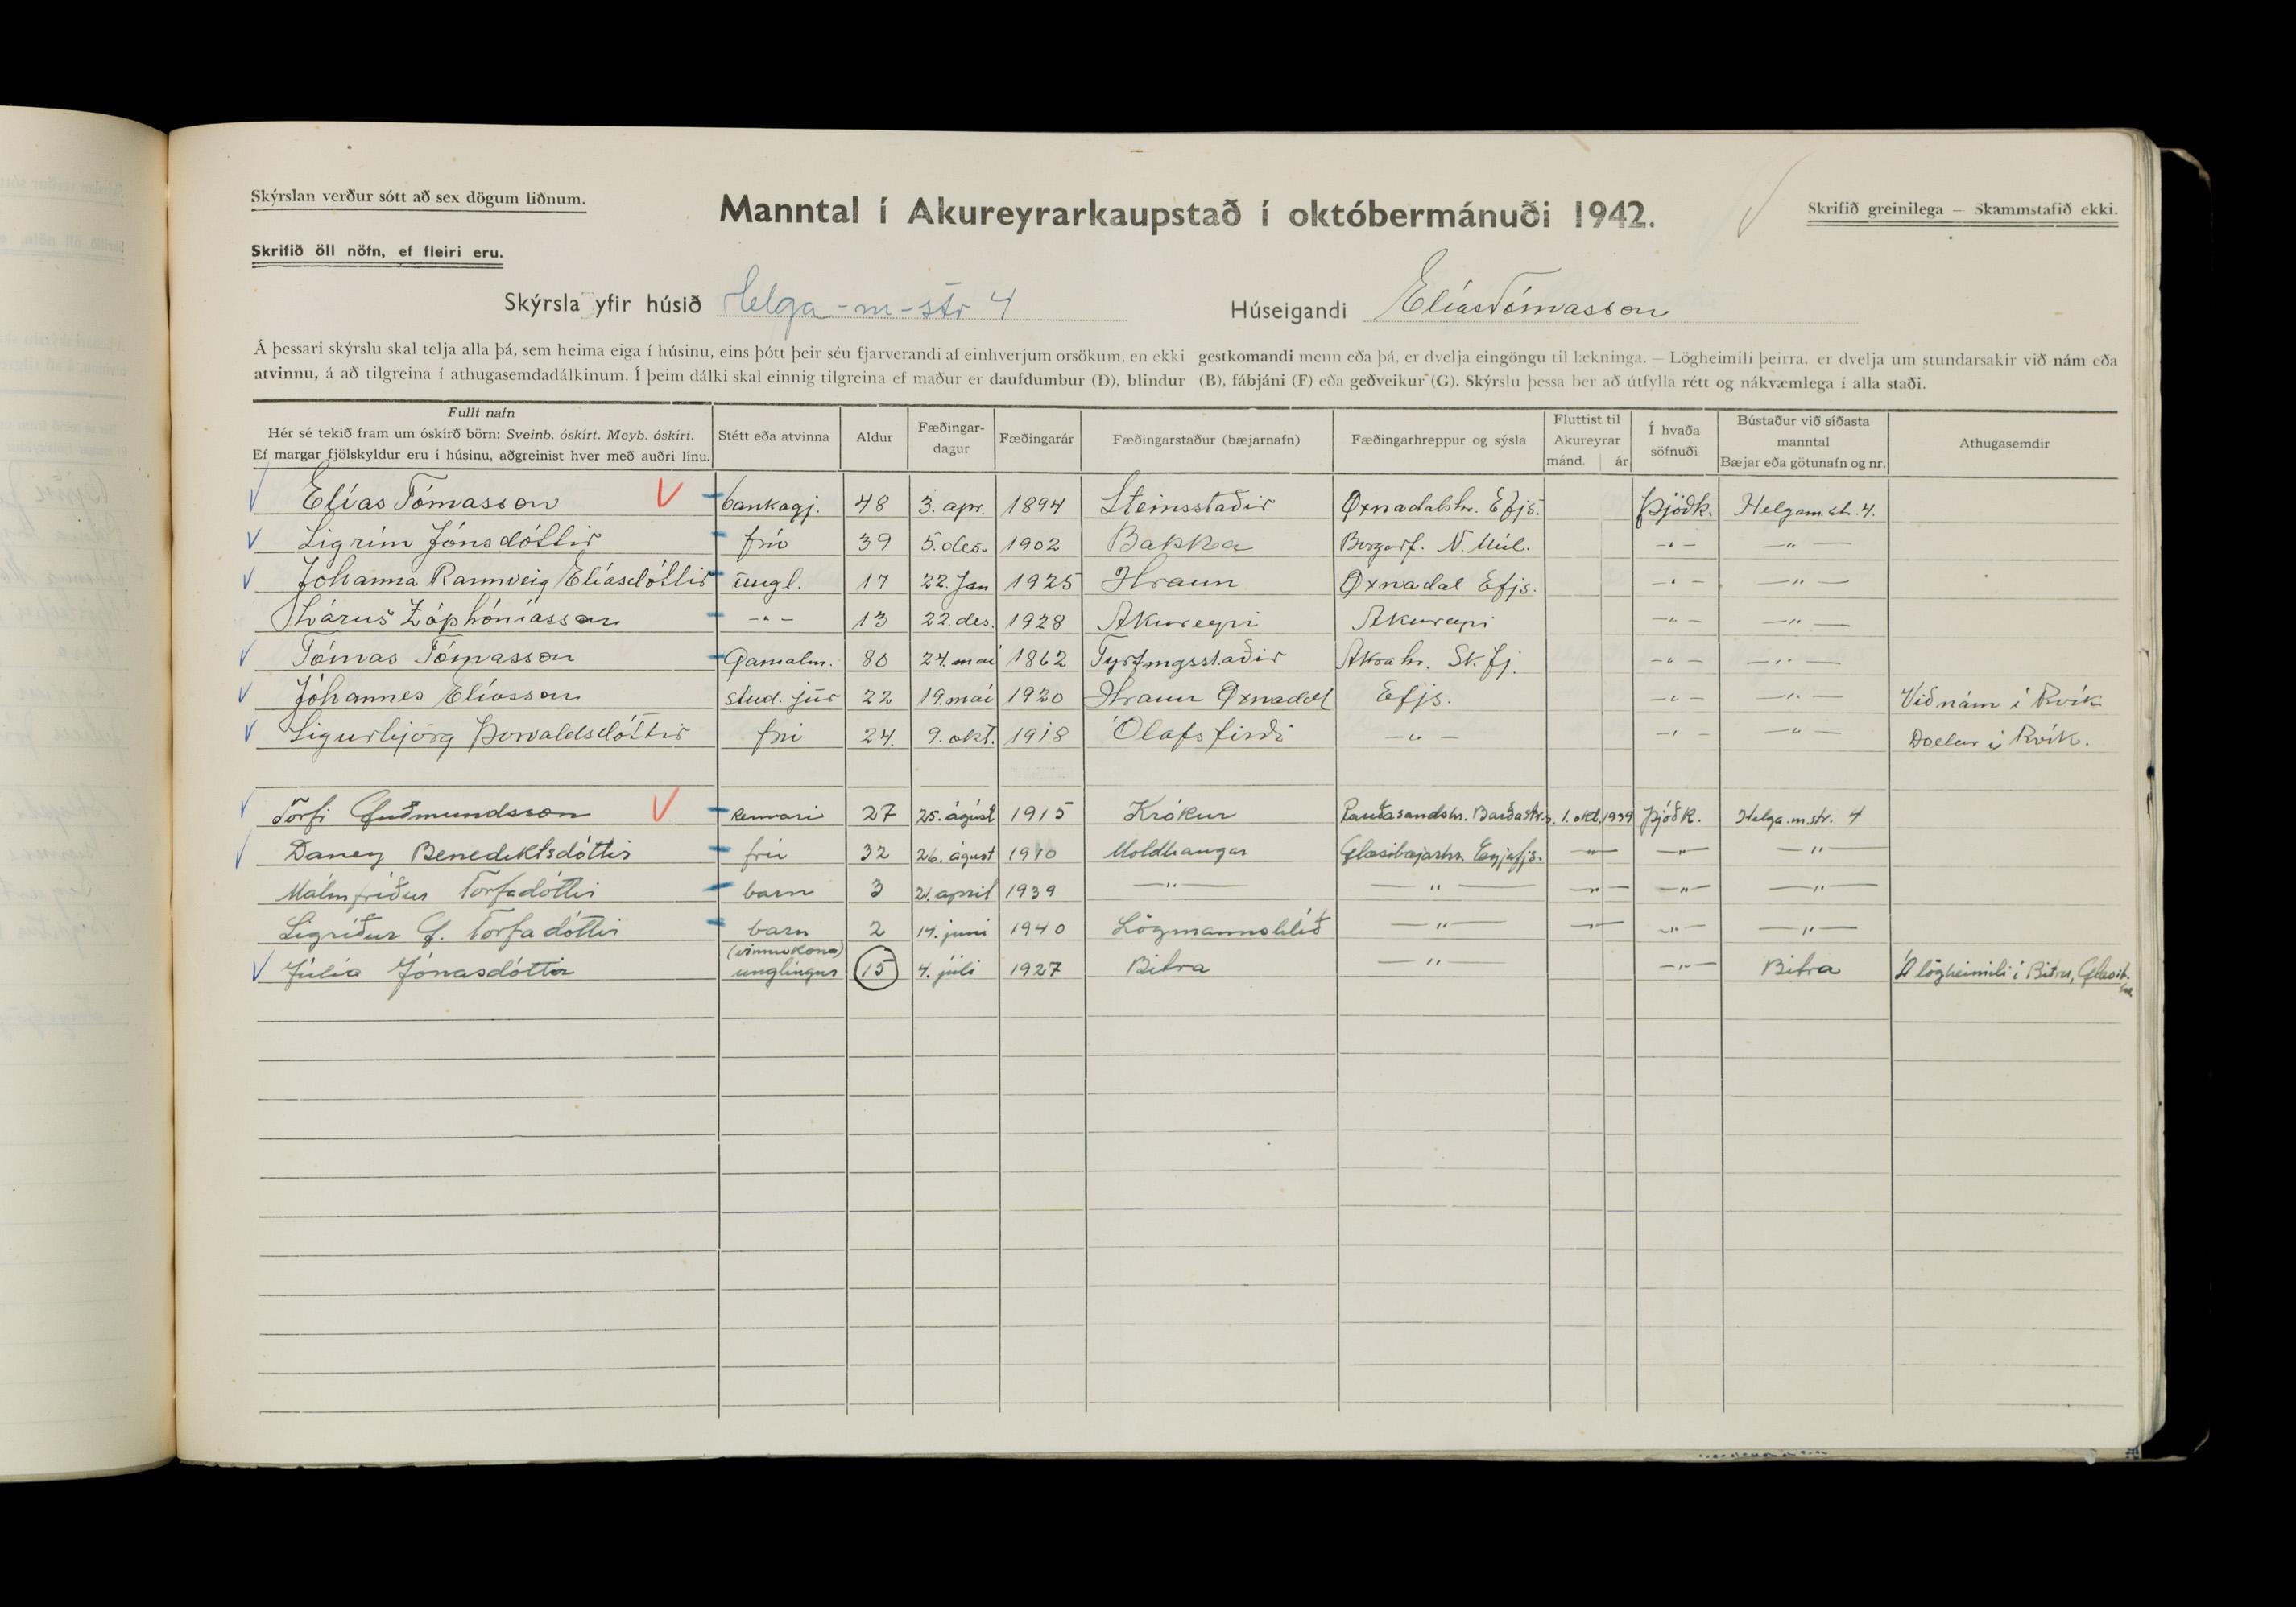 Skýrslan verður sótt að sex dögum liðnum.
Manntal í Akureyrarkaupstað í októbermánuði 1942.
Skrifið greinilega — Skammstafið ekki.
Skrifið öll nöfn, ef fleiri eru.
Skýrsla yfir húsið Helga-m-str 4 Húseigandi Elías Tómasson
Á þessari skýrslu skal telja alla þá, sem heima eiga í húsinu, eins þótt þeir séu fjarverandi af einhverjum orsökum, en ekki gestkomandi menn eða þá, er dvelja eingöngu til lækninga. — Lögheimili þeirra, er dvelja um stundarsakir við nám eða
atvinnu, á að tilgreina í athugasemdadálkinum. Í þeim dálki skal einnig tilgreina ef maður er daufdumbur (D), blindur (B), fábjáni (F) eða geðveikur (G). Skýrslu þessa ber að útfylla rétt og nákvæmlega í alla staði.
Fullt nafn
Hér sé tekið fram um óskírð börn: Sveinb. óskírt. Meyb. óskírt.
Ef margar fjölskyldur eru í húsinu, aðgreinist hver með auðri línu.
Stétt eða atvinna
Aldur
Fæðingar-
dagur
Fæðingarár
Fæðingarstaður (bæjarnafn)
Fæðingarhreppur og sýsla
Fluttist til
Akureyrar
mánd. ár
Í hvaða
söfnuði
Bústaður við síðasta
manntal
Bæjar eða götunafn og nr.
Athugasemdir
Elías Tómasson bankagj. 48 3. apr. 1894 Steinsstaðir Öxnadalshr. Efjs. Þjóðk. Helgam.str. 4.
Sigrún Jónsdóttir frú 39 5. des. 1902 Bakka Borgarf. N. Múl. -"- -"-
Jóhanna Rannveig Elíasdóttir ungl. 17 22. Jan 1925 Hraun Öxnadal Efjs. -"- -"-
Zóphóníasson -"- 13 22. des. 1928 Akureyri Akureyri -"- -"-
Tómas Tómasson Gamalm. 80 24. maí 1862 Tyrfingsstaðir Akrahr. Sk.fj. -"- -"-
Jóhannes Elíasson stud. jur 22 19. maí 1920 Hraun Öxnadal Efjs. -"- -"- Við nám í Rvík
Sigurbjörg Þorvaldsdóttir frú 24. 9. okt. 1918 Ólafsfirði -"- -"- -"- Dvelur í Rvík.
Torfi Guðmundsson kennari 27 25. ágúst 1915 Krókur Rauðasandshr. Barðastr.s. 1. okt. 1939 Þjóðk. Helga.m.str. 4
Daney Benediktsdóttir frú 32 26. ágúst 1910 Moldhaugar Glæsibæjarhr. Eyjafjs. -"- -"- -"-
Málmfríður Torfadóttir barn 3 21. apríl 1939 -"- -"- -"- -"- -"-
Sigríður G. Torfadóttir barn 2 14. júní 1940 Lögmannshlíð -"- -"- -"- -"-
(vinnukona)
Júlía Jónasdóttir unglingur 15 4. júlí 1927 Bitra -"- -"- Bitra Á lögheimili í Bitru, Glæsib.